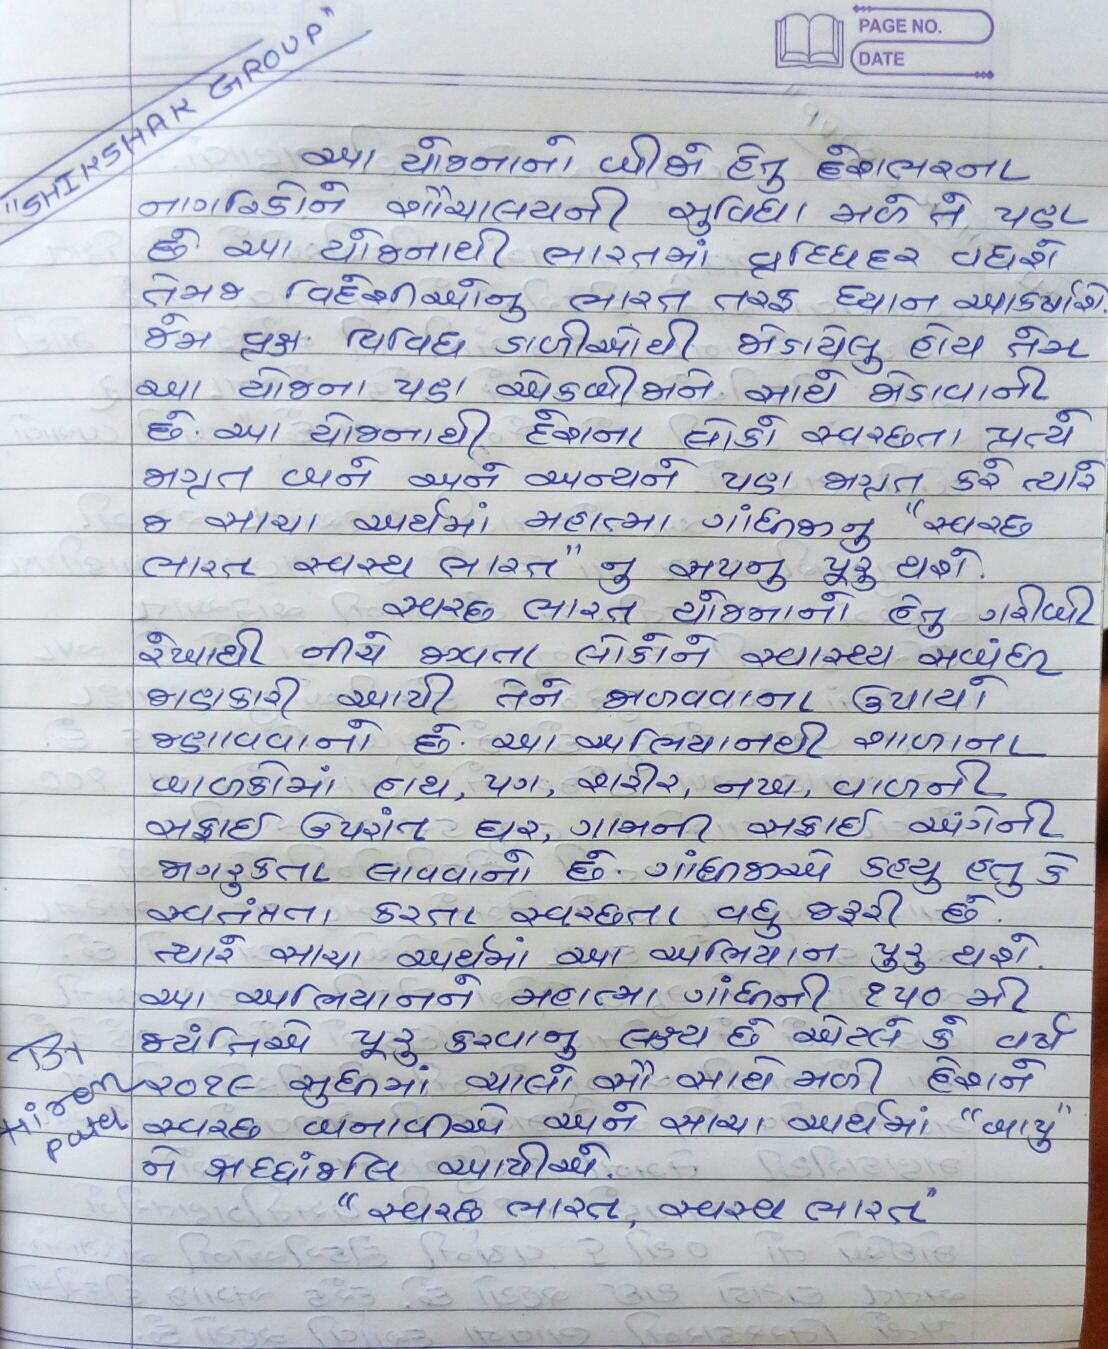 "SHIKSHAK GROUP"
PAGE NO.
DATE
આ યોજનાનો બીજો હેતુ દેશભરના
નાગરિકોને શૌચાલયની સુવિધા મળે તે પણ
છે આ યોજનાથી ભારતમાં વૃધ્ધિદર વધશે
તેમજ વિદેશીઓનુ ભારત તરફ ધ્યાન આકર્ષાશે.
જેમ વૃક્ષ વિવિધ ડાળીઓથી જોડાયેલુ હોય તેમ
આ યોજના પણ એકબીજાને સાથે જોડાવાની
છે. આ યોજનાથી દેશના લોકો સ્વચ્છતા પ્રત્યે
જાગૃત બને અને અન્યને પણ જાગૃત કરે ત્યારે
જ સાચા અર્થમાં મહાત્મા ગાંધીજીનુ "સ્વચ્છ
ભારત સ્વસ્થ ભારત" નુ સપનુ પૂરુ થશે.
સ્વચ્છ ભારત યોજનાનો હેતુ ગરીબી
રેખાથી નીચે જીવતા લોકોને સ્વાસ્થ્ય સબંધી
જાણકારી આપી તેને જાળવવાના ઉપાયો
જણાવવાનો છે. આ અભિયાનથી શાળાના
બાળકોમાં હાથ, પગ, શરીર, નખ, વાળની
સફાઈ ઉપરાંત ઘર, ગામની સફાઈ અંગેની
જાગરુકતા લાવવાનો છે. ગાંધીજીએ કહ્યુ હતુ કે
સ્વતંત્રતા કરતા સ્વચ્છતા વધુ જરૂરી છે.
ત્યારે સાચા અર્થમાં આ અભિયાન પુરુ થશે.
આ અભિયાનને મહાત્મા ગાંધીની ૧૫૦ મી
જ્યંતિએ પૂરુ કરવાનુ લક્ષ્ય છે એટલે કે વર્ષ
૨૦૧૯ સુધીમાં ચાલો સૌ સાથે મળી દેશને
સ્વચ્છ બનાવીએ અને સાચા અર્થમાં "બાપુ"
ને શ્રધ્ધાંજલિ આપીએ.
"સ્વચ્છ ભારત, સ્વસ્થ ભારત"
By
Hiren
patel